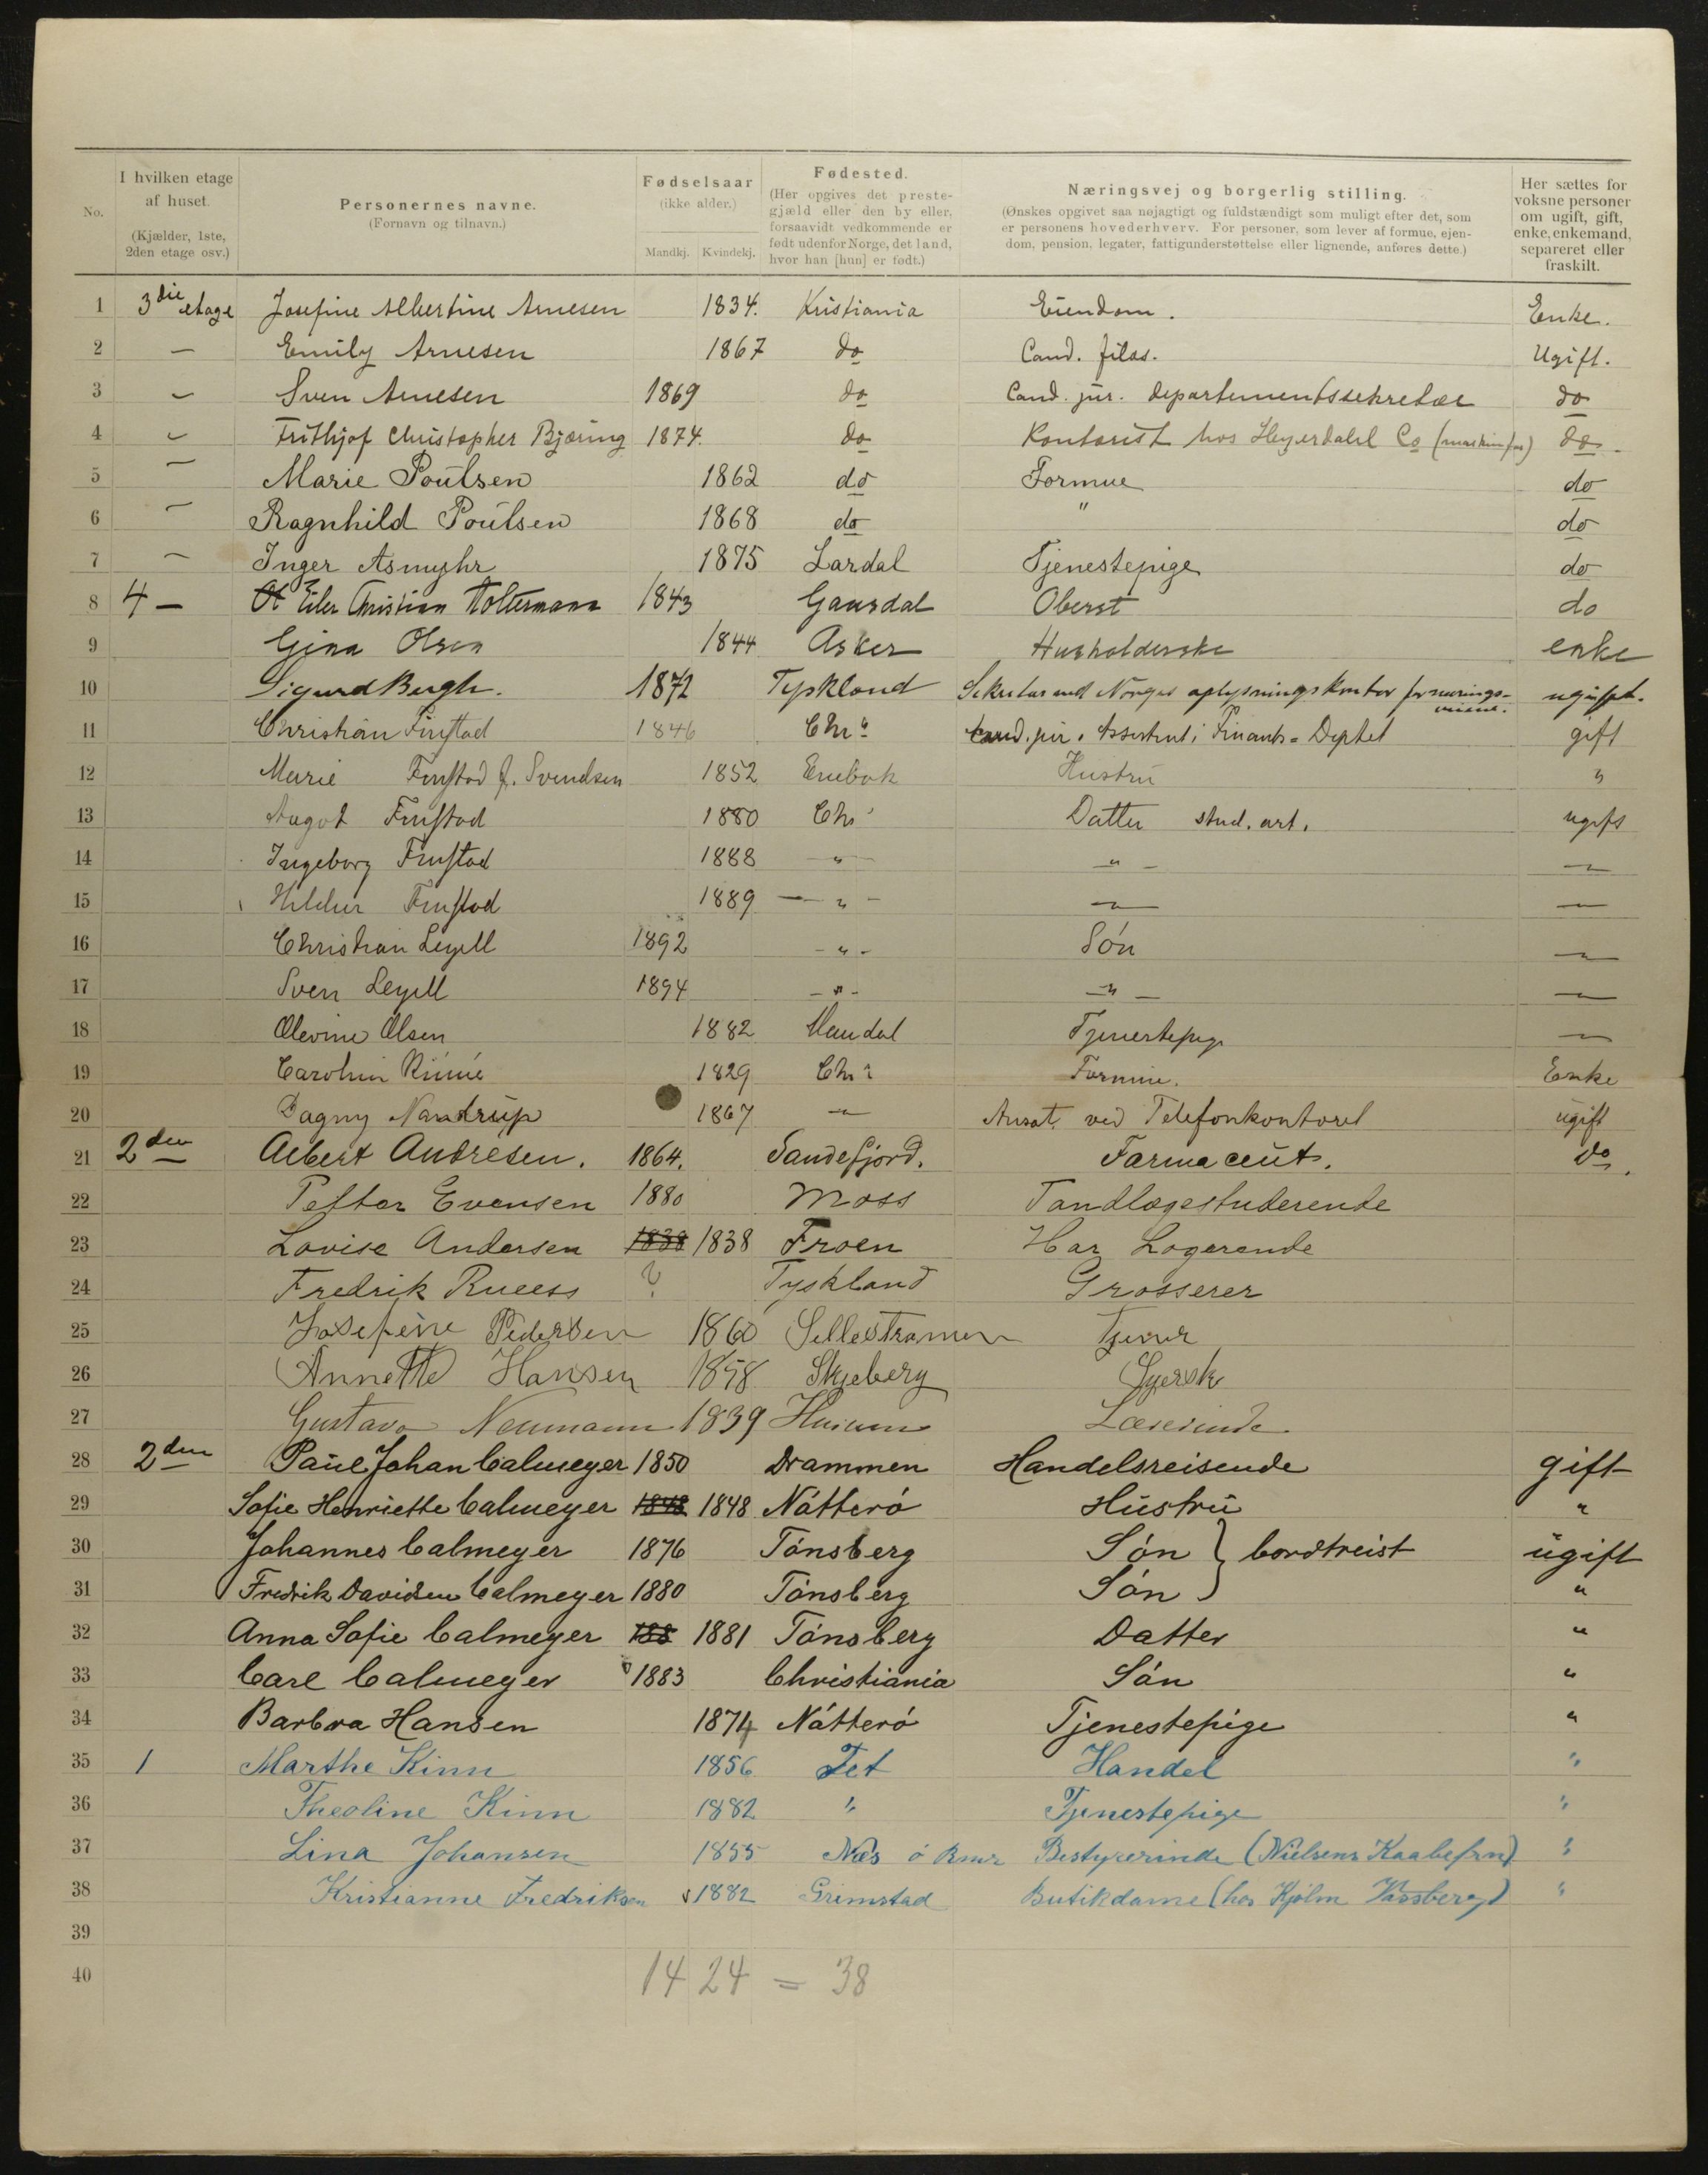 No.
I hvilken etage af huset.
(Kjælder, 1ste, 2den etage osv.)
Personernes navne.
(Fornavn og tilnavn.)
Fødselsaar
(ikke alder.)
Mandkj. Kvindekj.
Fødested.
(Her opgives det preste-
gjæld eller den by eller,
forsaavidt vedkommende er
født udenfor Norge, det land,
hvor han [hun] er født.)
Næringsvej og borgerlig stilling.
(Ønskes opgivet saa nøjagtigt og fuldstændigt som muligt efter det, som
er personens hovederhverv. For personer, som lever af formue, ejen-
dom, pension, legater, fattigunderstøttelse eller lignende, anføres dette.)
Her sættes for
voksne personer
om ugift, gift,
enke, enkemand,
separeret eller
fraskilt.
1 3die etage Josefine Albertine Arnesen 1834. Kristiania Eiendom. Enke.
2 — Emily Arnesen 1867 do Cand. filos. Ugift.
3 — Sven Arnesen 1869 do Cand. jur. departementssekretær do
4 — Frithjof Christopher Bjøring 1874. do Kontorist hos Heyerdahl Co do
5 — Marie Poulsen 1862 do Formue do
6 — Ragnhild Poulsen 1868 do " do
7 — Inger Asmyhr 1875 Lardal Tjenestepige do
8 4 — Eiler Christian Holtermann 1843 Gausdal Oberst do
9 Gina Olsen 1844 Asker Husholderske enke
10 Sigurd Bergh. 1872 Tyskland Sekretær ved Norges oplysningskontor for nærings- ugift.
11 Christian Finstad 1846 Chra Cand. jur. Assistent i Finants=Deptet gift
12 Marie Finstad f. Svendsen 1852 Enebak Hustru "
13 Aagot Finstad 1880 Chr Datter stud. art. ugift
14 Ingeborg Finstad 1888 — " — — " — —
15 Hildur Finstad 1889 — " — — —
16 Christian Leyell 1892 - " - Søn —
17 Sven Leyell 1894 - " - — " — —
18 Olevine Olsen 1882 Mandal Tjenestepige —
19 Carolin 1829 Chra Formue. Enke
20 Dagny Nandrup 1867 — Ansat ved Telefonkontoret ugift
21 2den Albert Andresen. 1864. Sandefjord. Farmaceut. do.
22 Petter Evensen 1880 Moss Tandlægestuderende
23 Lovise Andersen 1838 1838 Froen Har Logerende
24 Fredrik Rueess ? Tyskland Grosserer
25 Josefine Pedersen 1860
26 Annette Hansen 1858 Skjeberg Syersk
27 Gustava Neumann 1839 Hurum Lærerinde
28 2den Paul Johan Calmeyer 1850 Drammen Handelsreisende gift
29 Sofie Henriette Calmeyer 1848 1848 Nøtterø Hustru "
30 Johannes Calmeyer 1876 Tønsberg Søn } bortreist ugift
31 Fredrik Davidsen Calmeyer 1880 Tønsberg Søn "
32 Anna Sofie Calmeyer 188 1881 Tønsberg Datter "
33 Carl Calmeyer 1883 Christiania Søn "
34 Barbra Hansen 1874 Nøtterø Tjenestepige "
35 1 Marthe Kinn 1856 Fet Handel "
36 Theoline Kinn 1882 " Tjenestepige "
37 Lina Johansen 1855 Næs ø Rmr Bestyrerinde (Nielsens Kaabefrn) "
38 Kristianne Fredriksen 1882 Grimstad Butikdame (hos Kjølm Vassberg) "
39
40
14 24 = 38